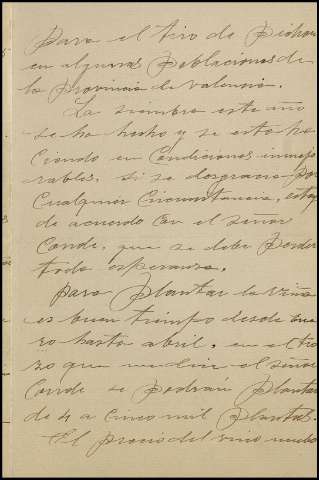 Para el tiro de Pichon
en algunas Poblaciones de
la Provincia de Valencia.
La siembra este año
se ha hecho y se está ha
ciendo en Condiciones inmejo
rables, si se desgracia por
Cualquier Circunstancia, estoy
de acuerdo con el señor
Conde, que se debe Perder
toda esperanza.
Para Plantar la viña
es buen tiempo desde ene
ro hasta abril, en el tro
zo que indica el señor
Conde se Podrán Plantar
de 4 a cinco mil Plantas.
El Precio del vino